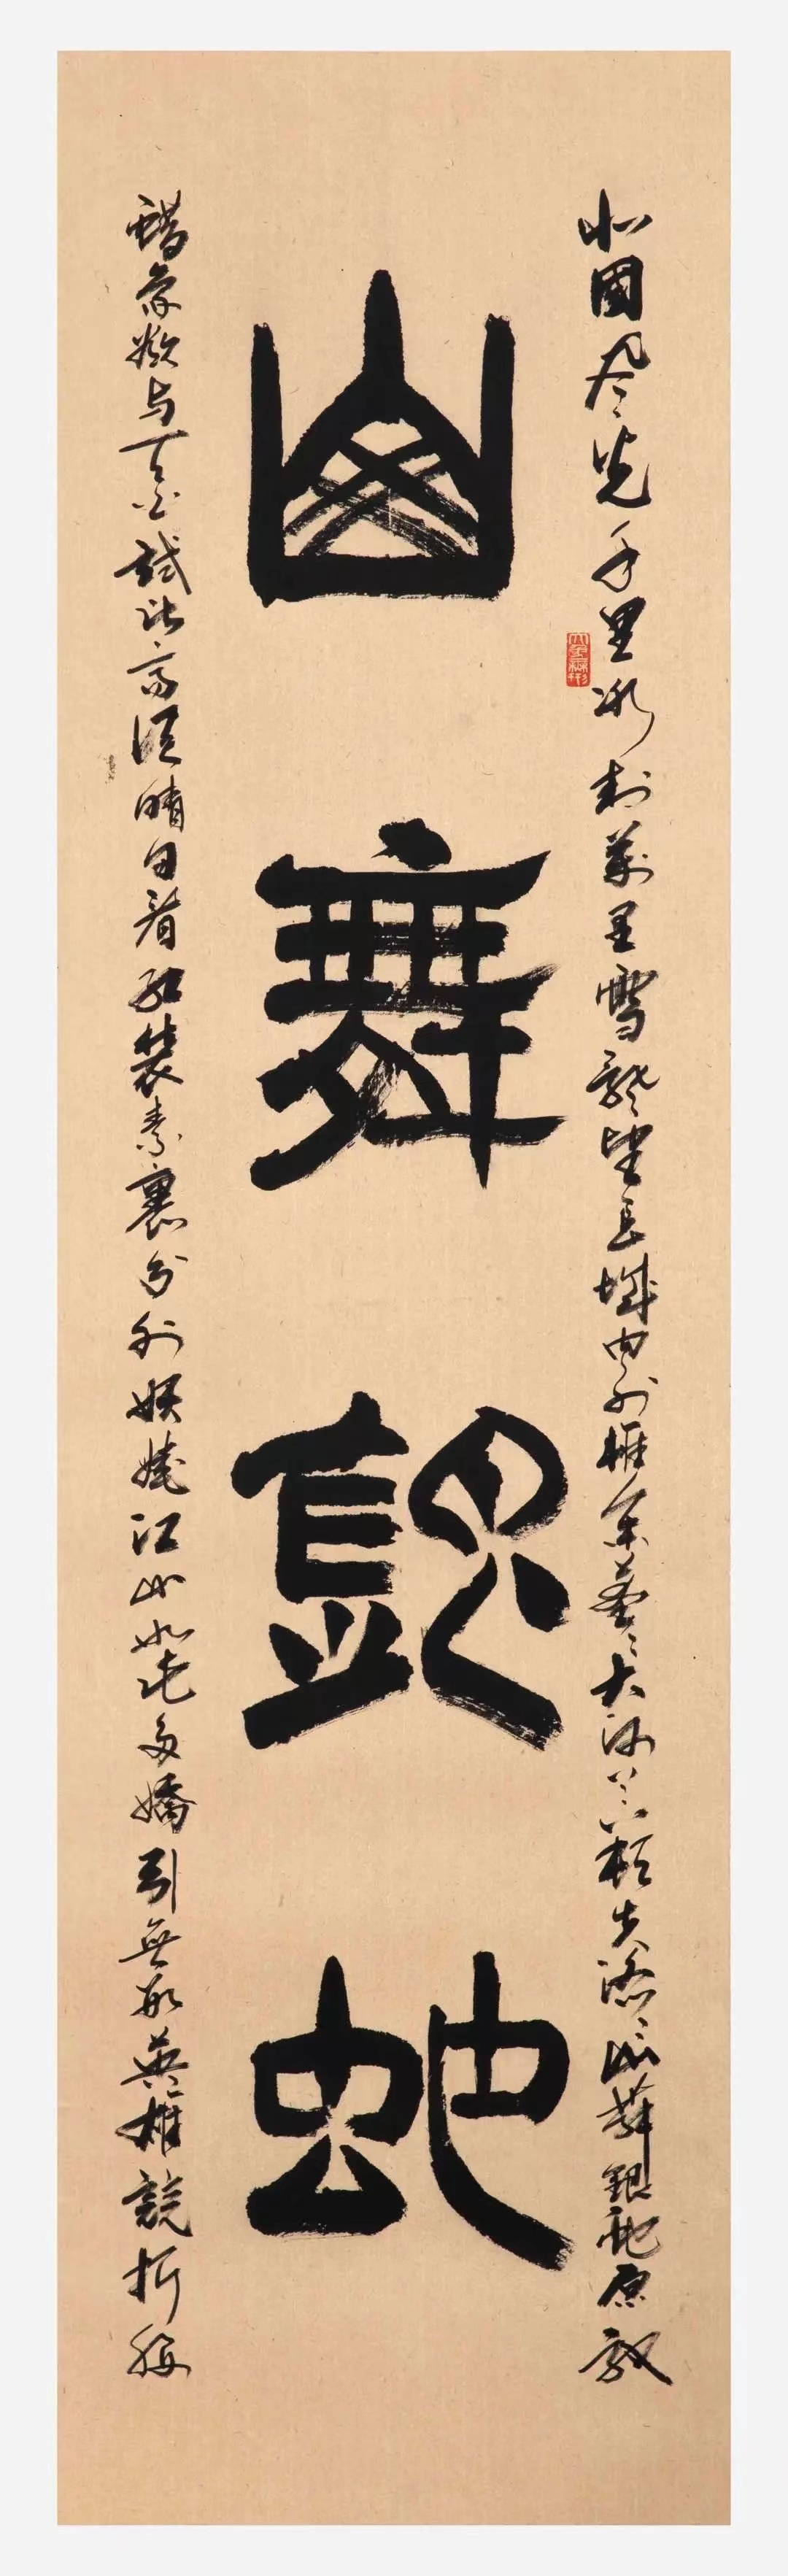 山舞銀蛇
北國風光千里冰封萬里雪飄望長城內外惟余莽〻大河上下頓失滔〻山舞銀蛇原馳
蠟象欲與天公試比高須晴日看紅裝素裹分外妖嬈江山如此多嬌引無數英雄競折腰